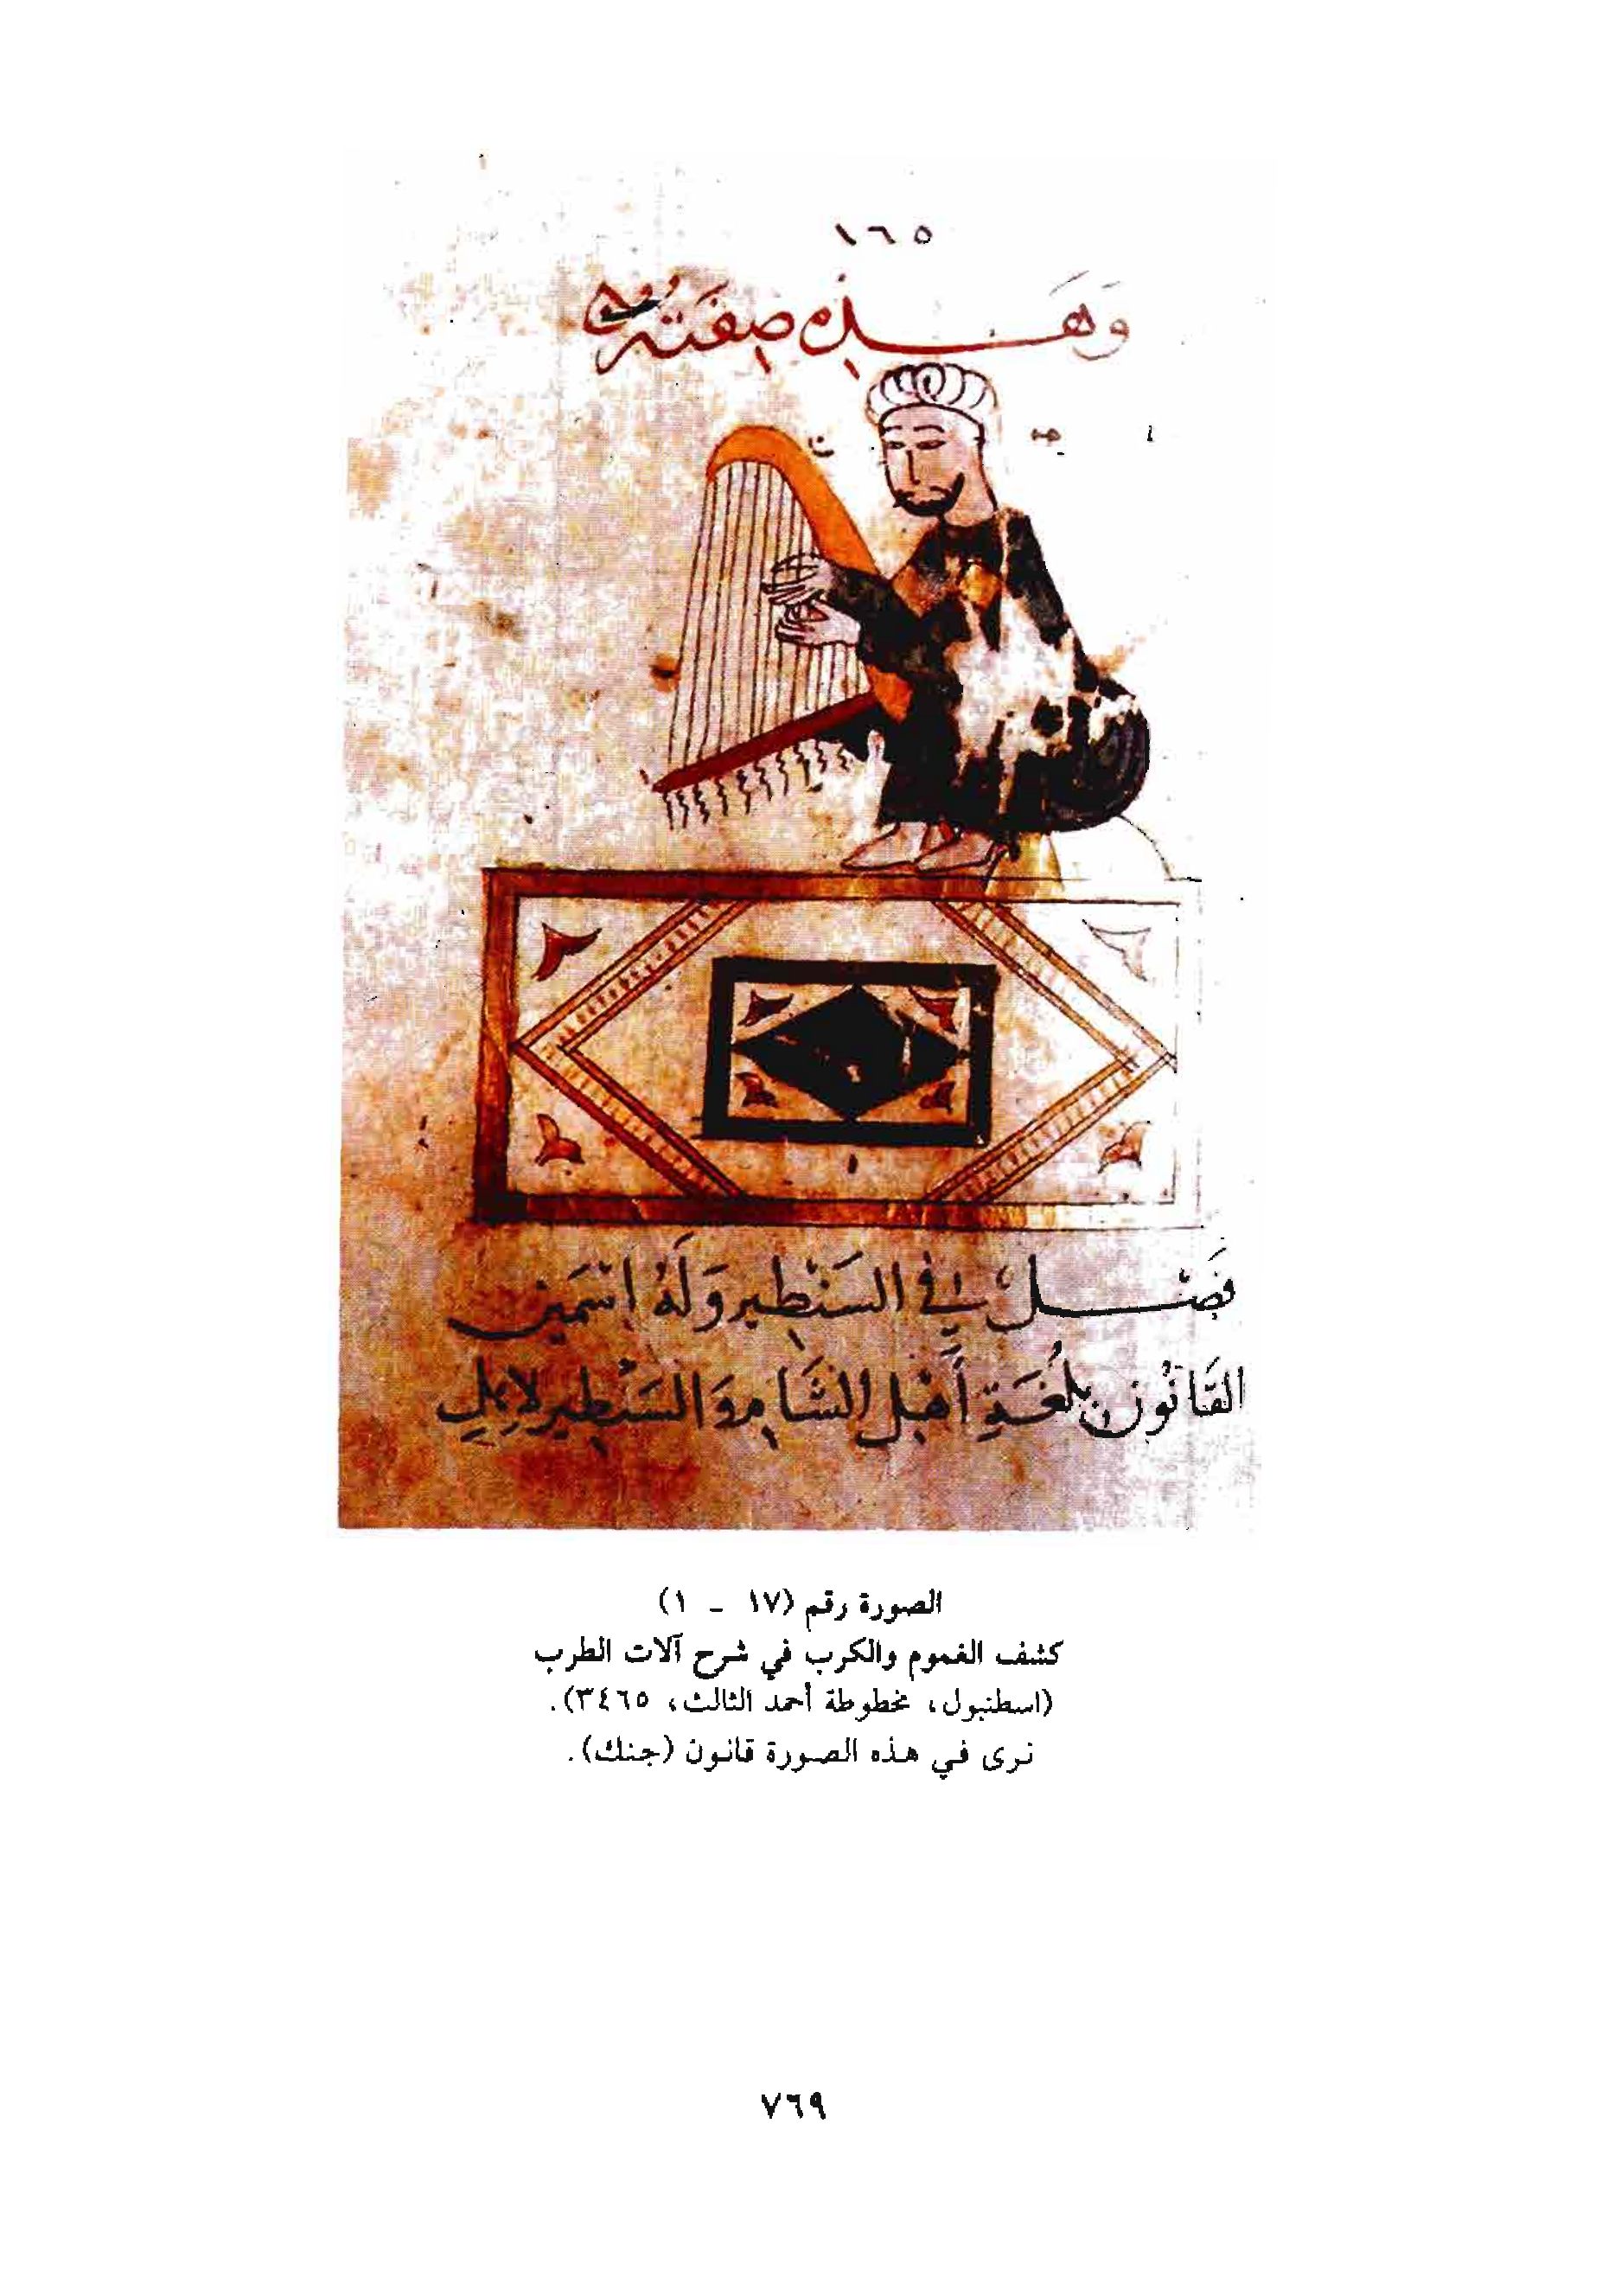 ١٦٥
وَهَذِهِ صِفَتُهُ
فَصْلٌ فِي السَنْطِير وَلَهُ اسْمَين
القَانُون بِلُغَةِ أَهْلِ الشَام وَالسَنْطِير لِأَهْلِ
الصورة رقم (١٧ - ١)
كشف الغموم والكرب في شرح آلات الطرب
(اسطنبول، مخطوطة أحمد الثالث، ٣٤٦٥).
نرى في هذه الصورة قانون (جنك).
٧٦٩